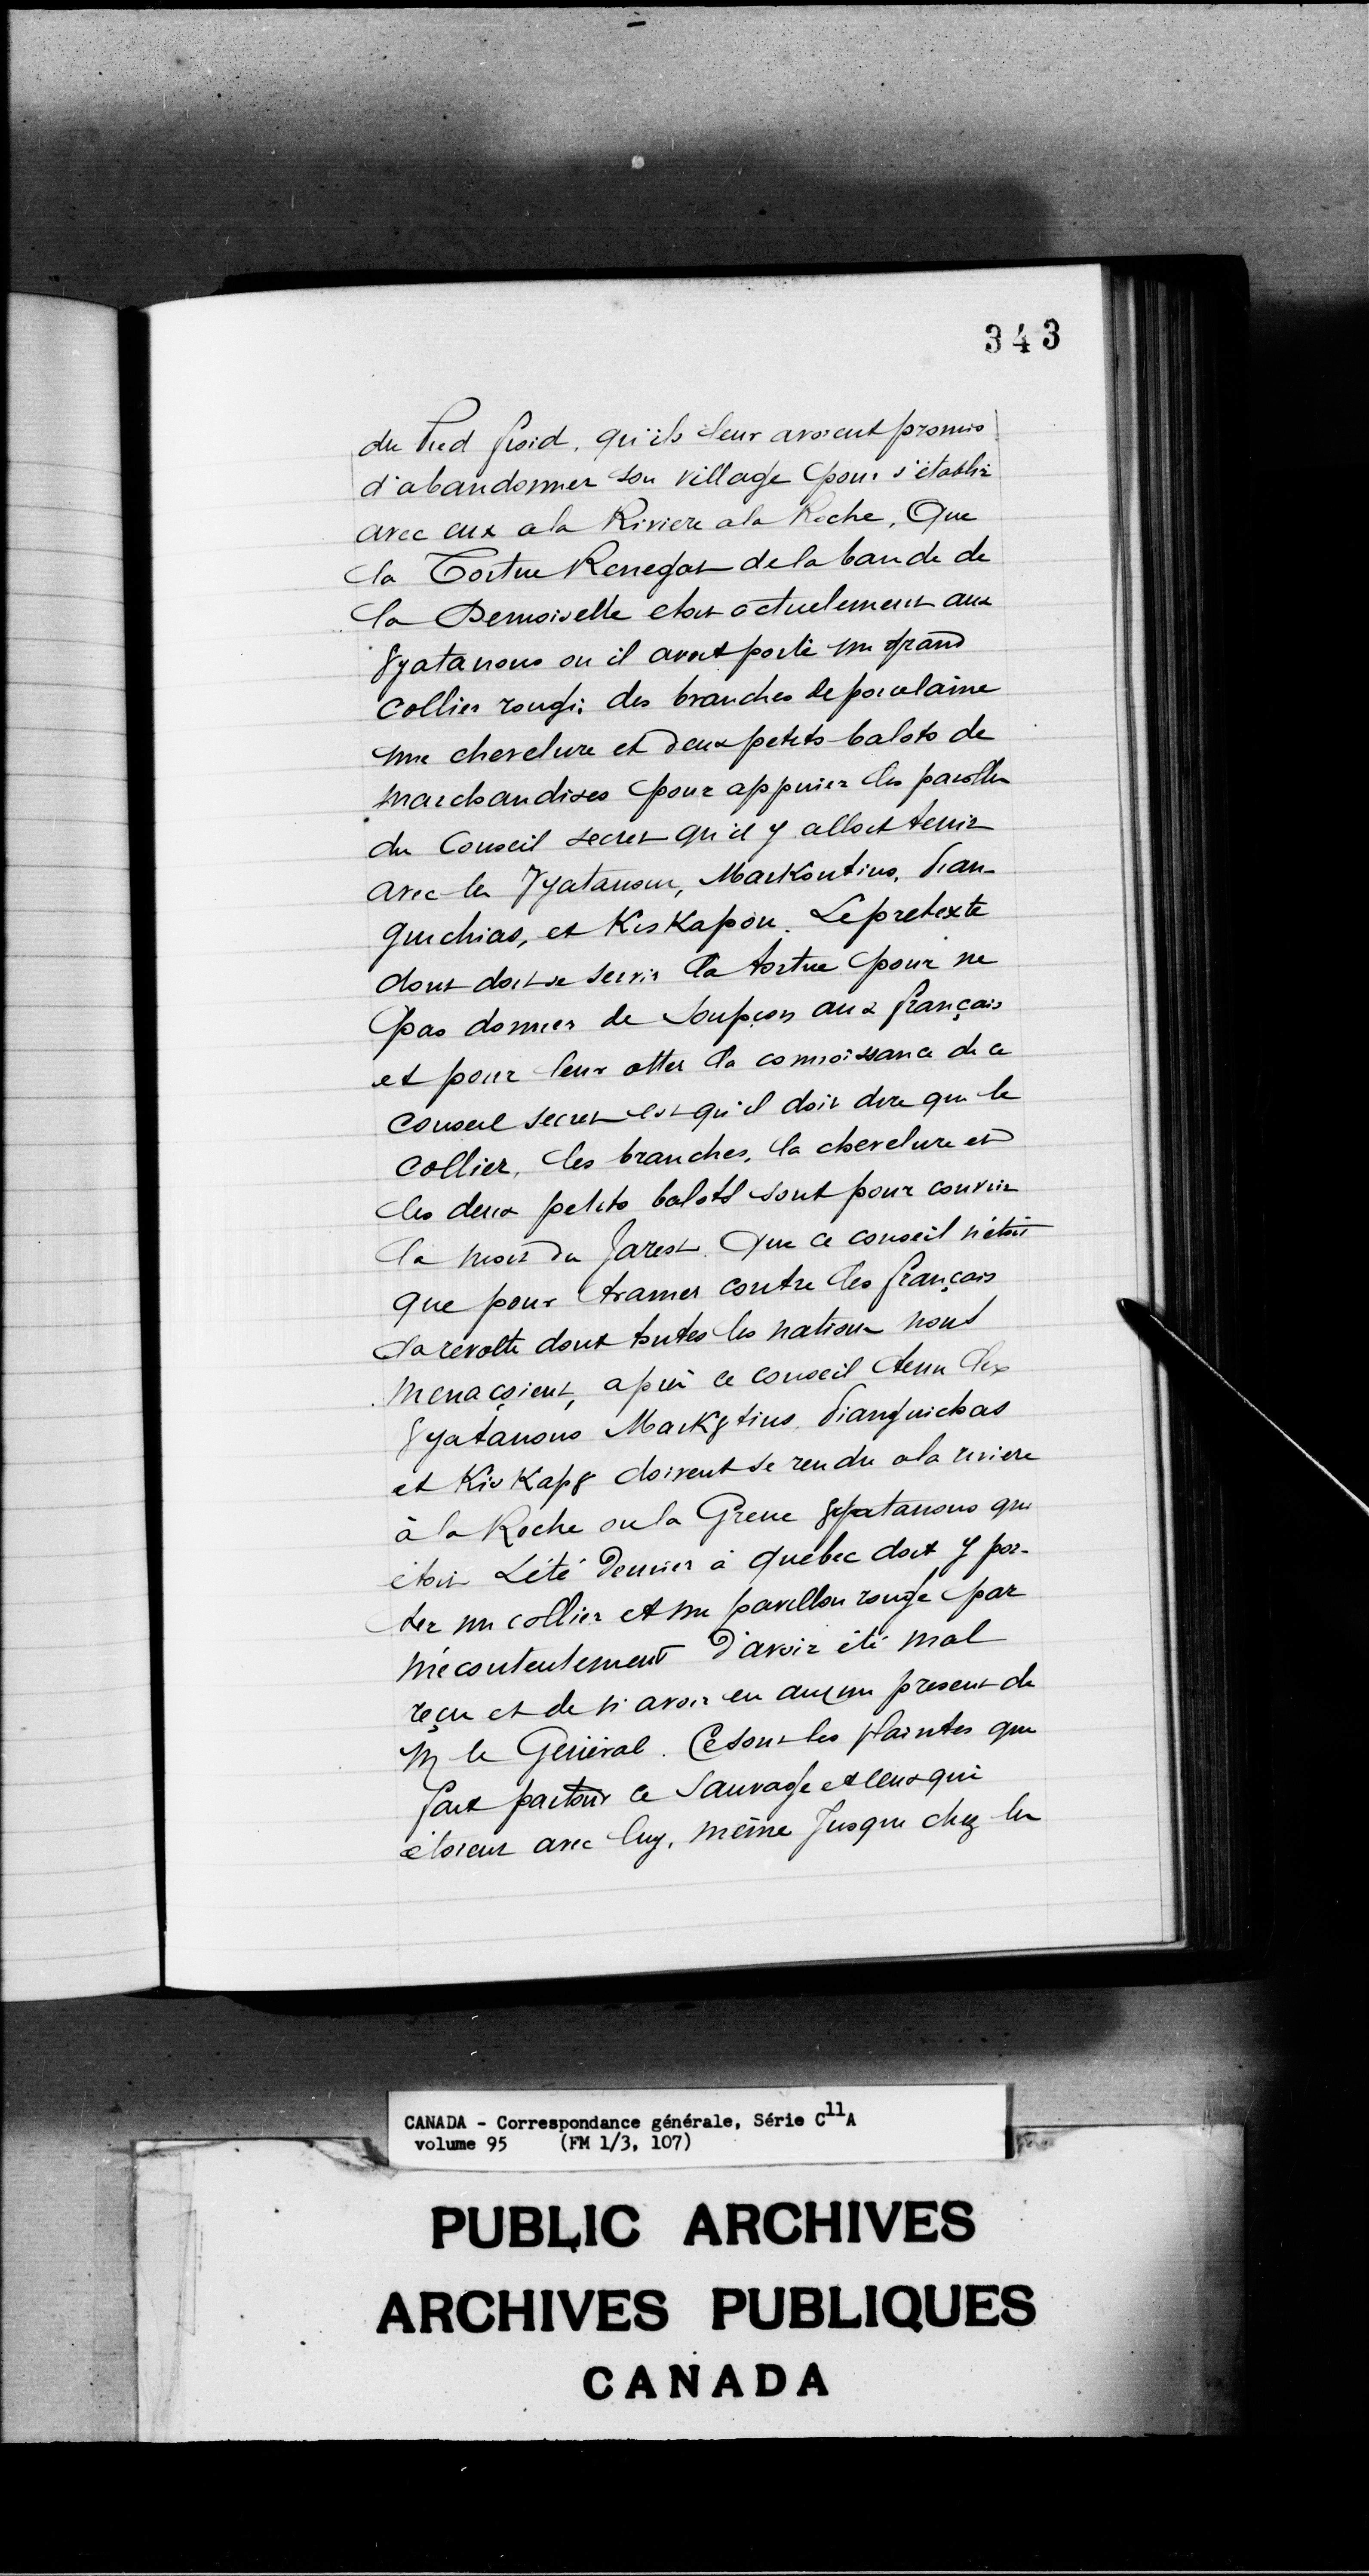 343
du Pied froid, qu'ils leur avoient promis
d'abandonner son village pour s'établir
avec eux a la Riviere a la Roche, Que
la Tortue Renegat de la bande de
la Demoiselle etoit actuelement aux
8yatanons ou il avoit porté un grand
collier rougi; des branches de porcelaine
une chevelure et deux petits balots de
marchandises pour appuier les parolles
du Conseil secret qu'il y alloit tenir
avec les 8yatanons, Maskoutins, Pian-
guichias, et Kiskapou. Le pretexte
dont doit se servir la tortue pour ne
pas donner de soupçon aux français
et pour leur otter la connoissance de ce
conseil secret est qu'il doit dire que le
collier, les branches, la chevelure et
les deux petits balots sont pour couvrir
la mort du Jaret. Que ce conseil n'étoit
que pour tramer contre les français
la revolte dont toutes les nations nous
menaçoient, après ce conseil tenu les
8yatanons Mask8tins, Pianguichas
et KisKap8 doivent se rendre a la riviere
à la Roche ou la Grue 8yatanons qui
étoit L'été dernier à Québec doit y por-
ter un collier et un pavillon rouge par
mécontentement d'avoir été mal
reçu et de n'avoir eu aucun present de
M le Général. Ce sont les plaintes que
fait partout ce Sauvage et ceux qui
étoient avec luy, même Jusque chez les
CANADA - Correspondance générale, Série C11A
volume 95 (FM 1/3, 107)
PUBLIC ARCHIVES
ARCHIVES PUBLIQUES
CANADA